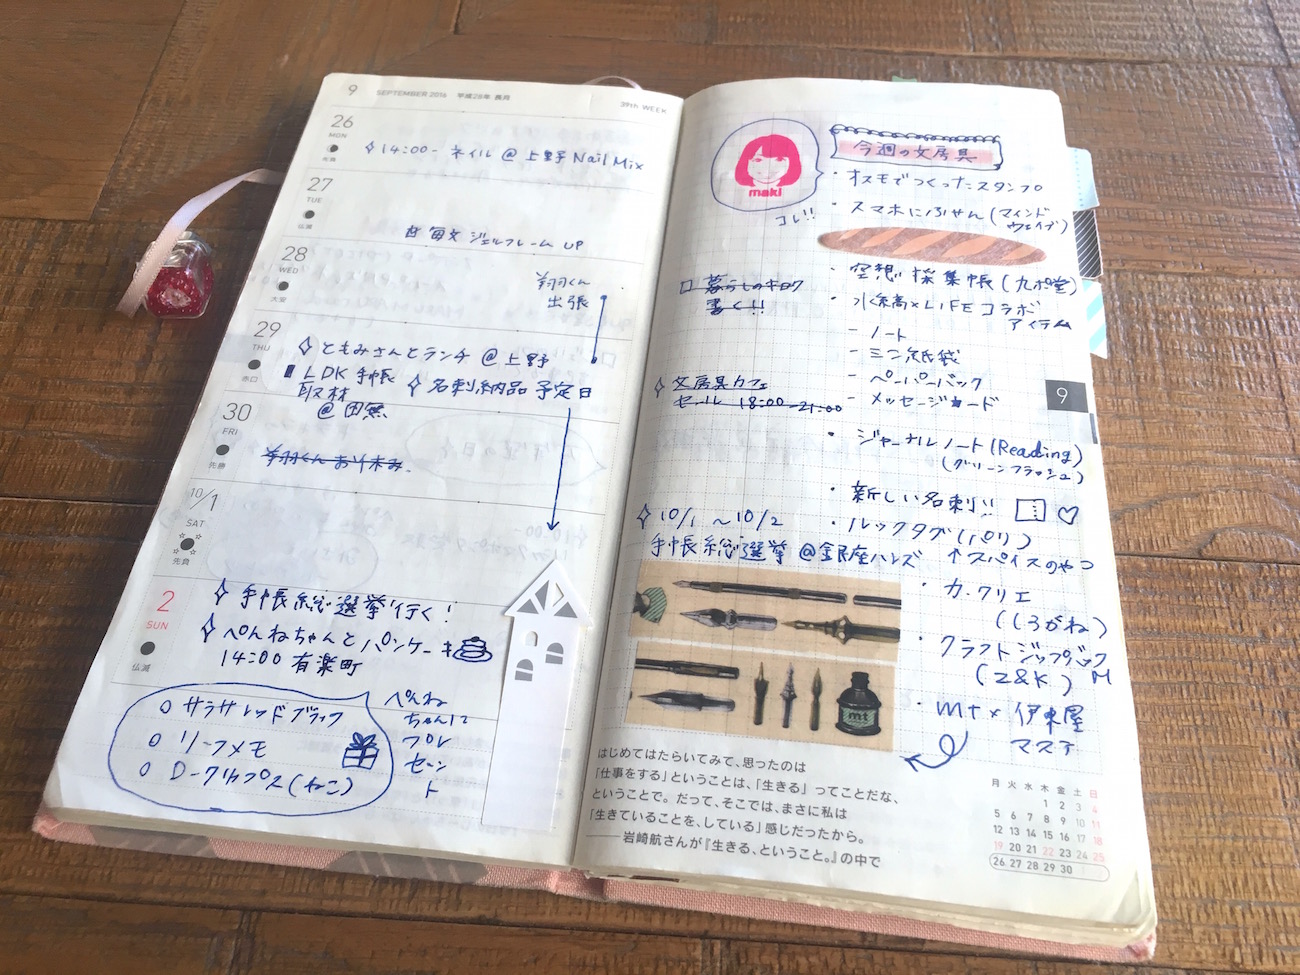 9 SEPTEMBER 2016 平成28年 長月
39th WEEK
26
MON
先負
14:00- ネイル @ 上野 Nail Mix
27
TUE
仏滅
毎文 ジェルフレーム UP
28
WED
大安
翔羽くん
出張
29
THU
赤口
ともみさんとランチ @ 上野
LDK 手帳
取材
@ 田無
名刺納品 予定日
30
FRI
先勝
翔羽くん お休み
10/1
SAT
先負
2
SUN
仏滅
手帳総選挙 行く!
ぺんねちゃんとパンケーキ
14:00 有楽町
サラサ レッドブラック
リーフメモ
D-クリップス(ねこ)
ぺんね
ちゃんに
プレ
ゼン
ト
maki
コレ!!
今週の文房具
・オスモでつくったスタンプ
・スマホにふせん(マインド
ウェイブ)
・空想採集帳(九ポ堂)
・水縞×LIFEコラボ
アイテム
- ノート
- ミニ紙袋
- ペーパーバック
- メッセージカード
暮らしのキロク
書く!!
文房具カフェ
セール 18:00-21:00
・ジャーナルノート(Reading)
(グリーンフラッシュ)
・新しい名刺!!
10/1 ~10/2
手帳総選挙 @銀座ハンズ
・ルックタグ(パリ)
↑スパイスのやつ
・カ.クリエ
(しろがね)
・クラフトジップバック
(Z&K) M
・mt×伊東屋
マステ
mt
はじめてはたらいてみて、思ったのは
「仕事をする」ということは、「生きる」ってことだな、
ということで。だって、そこでは、まさに私は
「生きていることを、している」感じだったから。
——岩崎航さんが『生きる、ということ。』の中で
9
月 火 水 木 金 土 日
1 2 3 4
5 6 7 8 9 10 11
12 13 14 15 16 17 18
19 20 21 22 23 24 25
26 27 28 29 30